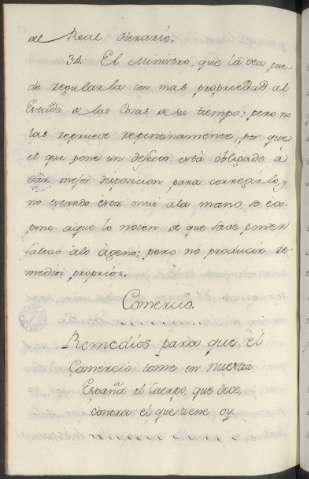 del Real Herario.
34. El Ministro, que la vea, pue-
de regularla con mas propriedad al
Estado de las Cosas de su tiempo; pero no
las repruebe repentinamente, por que
el que pone un defecto está obligado á
dár mejor disposicion para corregirlo, y
no estando esta mui ála mano, se ex-
pone aque lo noten de que sabe poner
faltas álo ageno; pero no producir re-
medios proprios.
Comercio.
Remedios para que el
Comercio tome en nueva
España el Cuerpo, que deve,
contra el que tiene oy